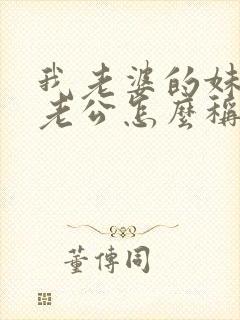 我老婆的妹
老公怎麼稱
董傳同